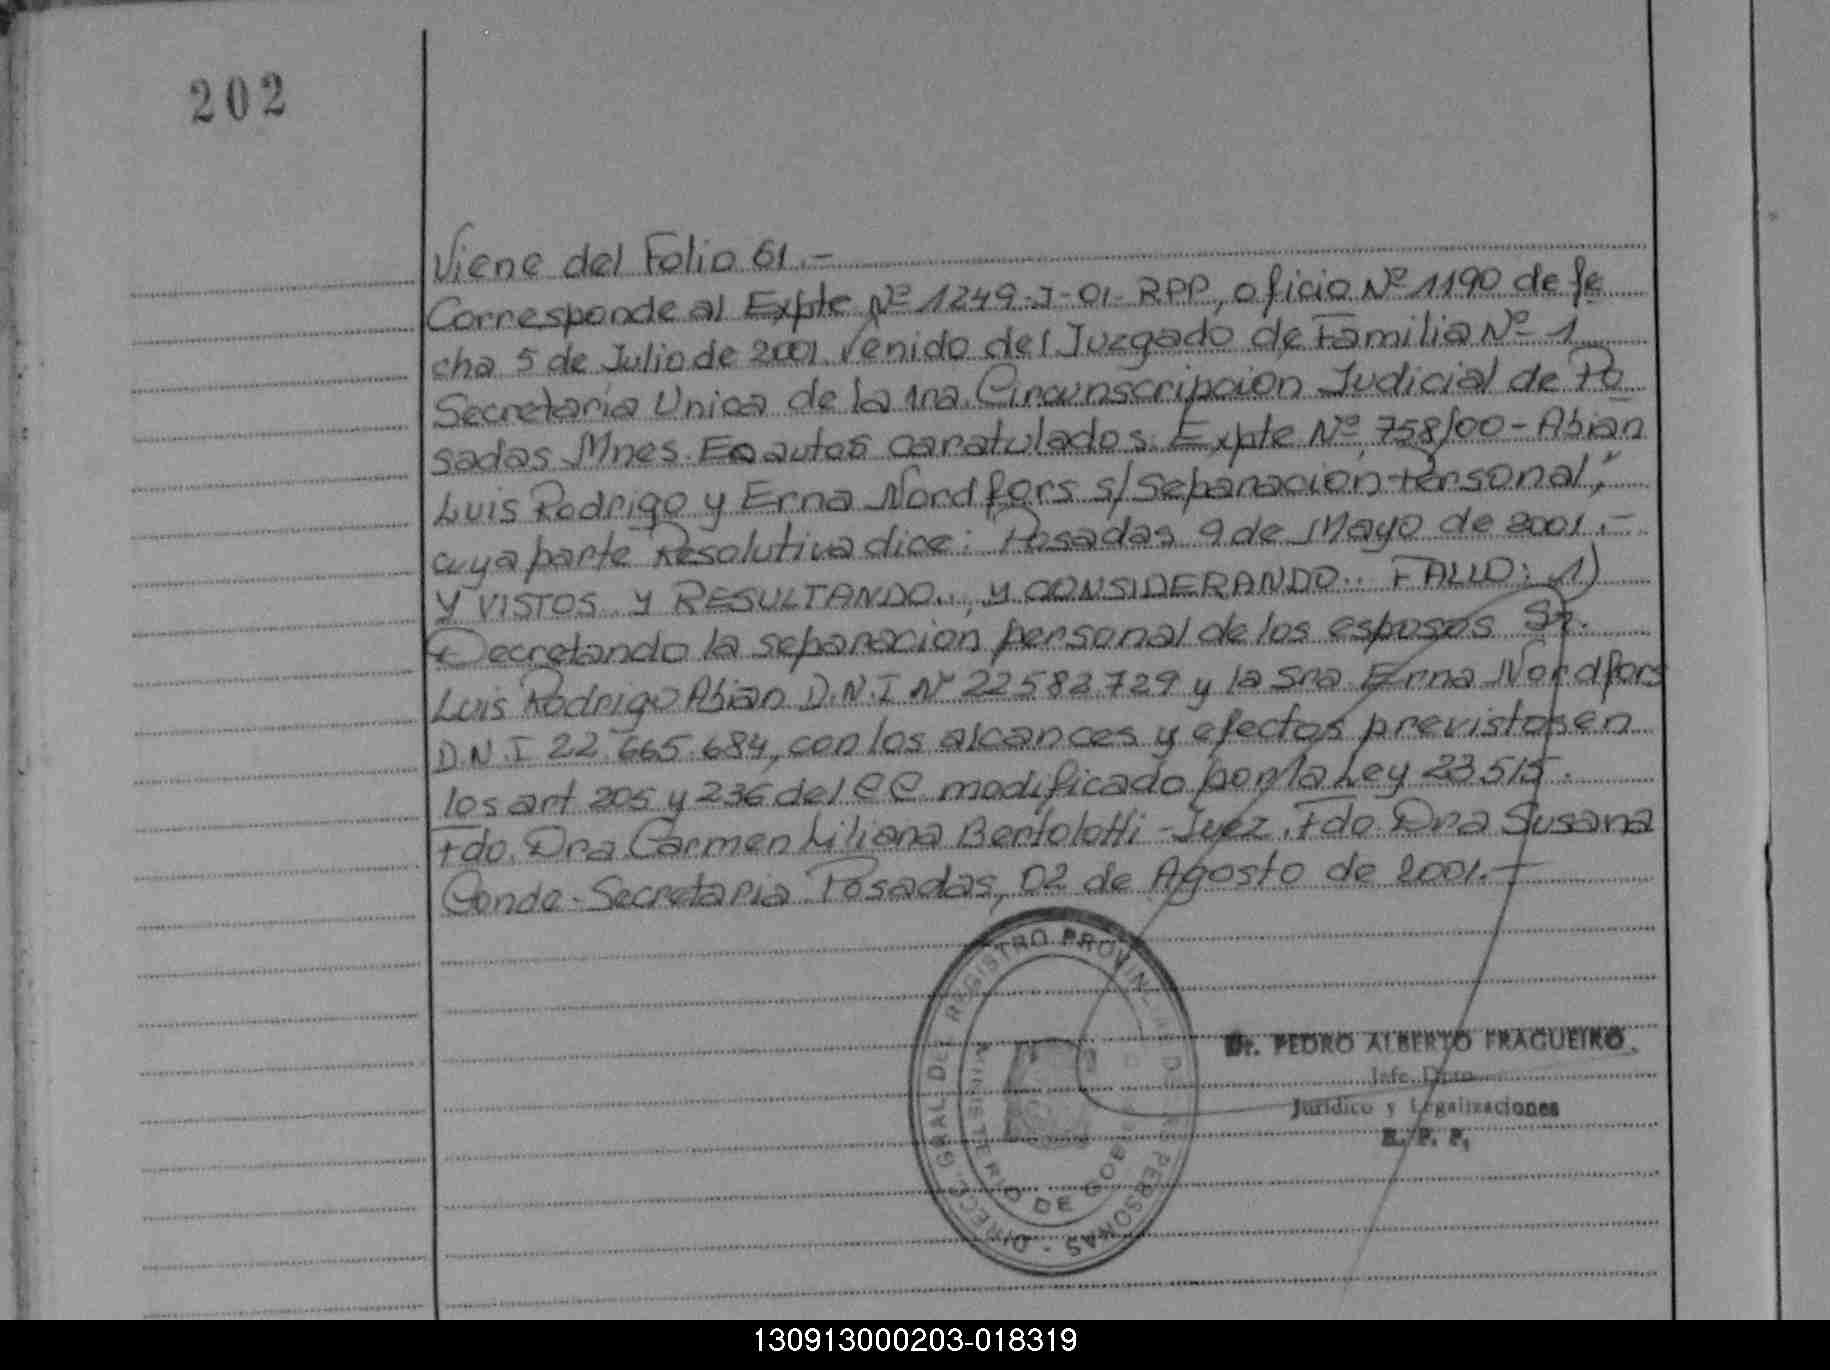 202
Viene del Folio 61.-
Corresponde al Expte Nº 1249-J-01-RPP, oficio Nº 1190 de fe
cha 5 de Julio de 2001 Venido del Juzgado de Familia Nº 1
Secretaria Unica de la 1ra. Circunscripcion Judicial de Po
sadas Mnes. En autos caratulados: Expte Nº 758/00 - Abian
Luis Rodrigo y Erna Nordfors s/ Separacion Personal",
cuya parte Resolutiva dice: Posadas 9 de Mayo de 2001.-
Y VISTOS Y RESULTANDO.., Y CONSIDERANDO.. FALLO: 1)
Decretando la separacion personal de los esposos Sr.
Luis Rodrigo Abian D.N.I Nº 22582729 y la Sra. Erna Nordfors
D.N.I 22.665.684, con los alcances y efectos previstos en
los art 205 y 236 del CC modificado por la Ley 23.515.
Fdo. Dra. Carmen Liliana Bertolotti - Juez. Fdo. Dra Susana
Conde - Secretaria. Posadas, 02 de Agosto de 2001.-
DIRECC. GRAL DEL REGISTRO PROVINCIAL DE LAS PERSONAS -
MINISTERIO DE GOB
Dr. PEDRO ALBERTO FRAGUEIRO
Jefe Dpto.
Jurídico y Legalizaciones
R. P. P.
130913000203-018319